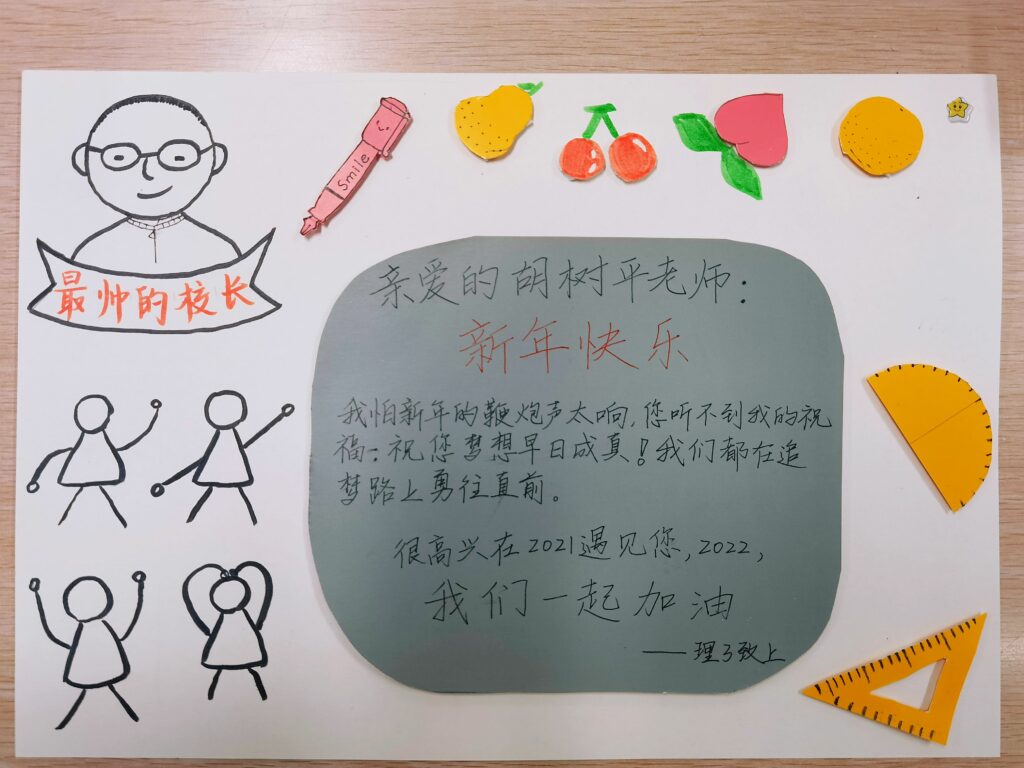 最帅的校长
Smile
亲爱的胡树平老师：
新年快乐
我怕新年的鞭炮声太响,您听不到我的祝
福：祝您梦想早日成真！我们都在追
梦路上勇往直前。
很高兴在2021遇见您,2022,
我们一起加油
——理3致上